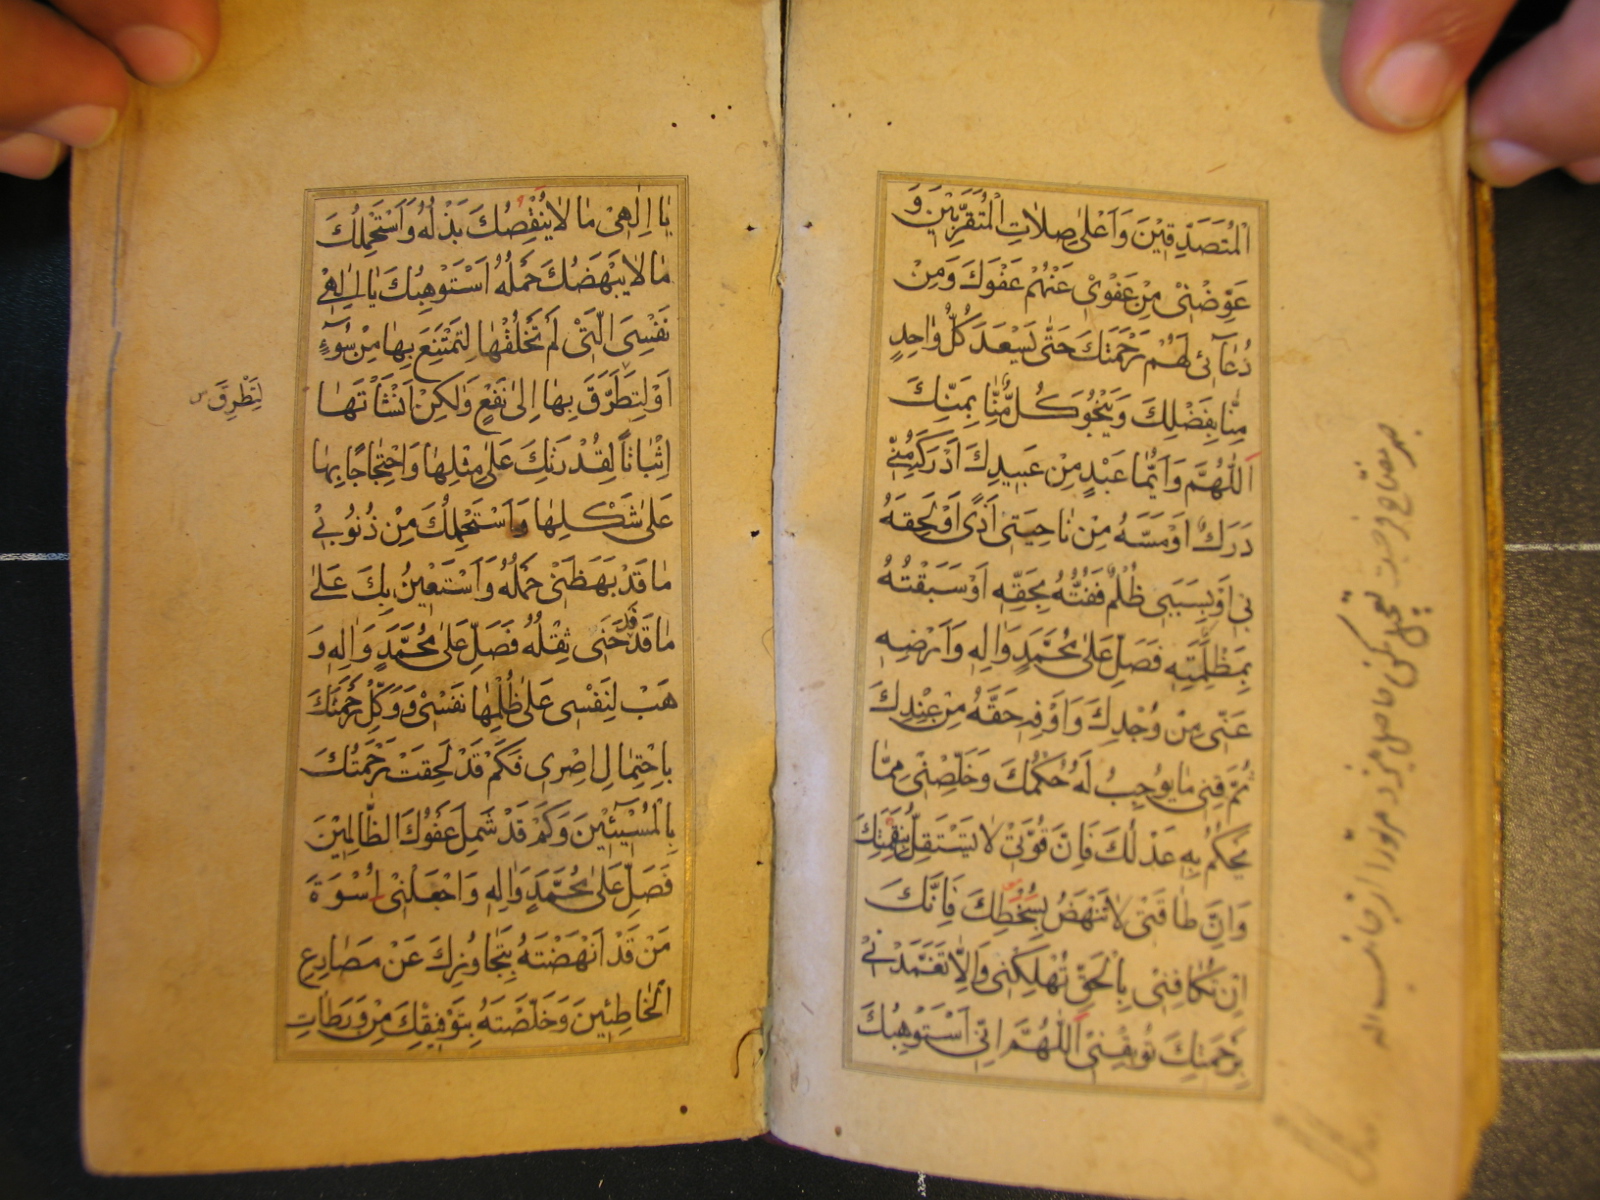 الْمُتَصَدِّقِيْنَ وَاَعْلٰى صِلَاتِ الْمُتَقَرِّبِيْنَ وَ
عَوِّضْنِيْ مِنْ عَفْوِيْ عَنْهُمْ عَفْوَكَ وَمِنْ
دُعَآئِيْ لَهُمْ رَحْمَتَكَ حَتّٰى يَسْعَدَ كُلُّ وَاحِدٍ
مِنَّا بِفَضْلِكَ وَيَنْجُوَ كُلٌّ مِنَّا بِمَنِّكَ
اَللّٰهُمَّ وَاَيُّمَا عَبْدٍ مِنْ عَبِيدِكَ اَدْرَكَهُ مِنِّيْ
دَرَكٌ اَوْ مَسَّهُ مِنْ نَاحِيَتِيْ اَذًى اَوْ لَحِقَهُ
بِيْ اَوْ بِسَبَبِيْ ظُلْمٌ فَفُتُّهُ بِحَقِّهِ اَوْ سَبَقْتُهُ
بِمَظْلِمَتِهِ فَصَلِّ عَلٰى مُحَمَّدٍ وَاٰلِهِ وَاَرْضِهِ
عَنِّيْ مِنْ وُجْدِكَ وَاَوْفِهِ حَقَّهُ مِنْ عِنْدِكَ
ثُمَّ قِنِيْ مَا يُوجِبُ لَهُ حُكْمُكَ وَخَلِّصْنِيْ مِمَّا
يَحْكُمُ بِهِ عَدْلُكَ فَاِنَّ قُوَّتِيْ لَا تَسْتَقِلُّ بِنِقْمَتِكَ
وَاِنَّ طَاقَتِيْ لَا تَنْهَضُ بِسُخْطِكَ فَاِنَّكَ
اِنْ تُكَافِنِيْ بِالْحَقِّ تُهْلِكْنِيْ وَاِلَّا تَغَمَّدْنِيْ
بِرَحْمَتِكَ تُوبِقْنِيْ اَللّٰهُمَّ اِنِّيْ اَسْتَوْهِبُكَ
يَا اِلٰهِيْ مَا لَا يَنْقُصُكَ بَذْلُهُ وَاَسْتَحْمِلُكَ
مَا لَا يَبْهَضُكَ حَمْلُهُ اَسْتَوْهِبُكَ يَا اِلٰهِيْ
نَفْسِيَ الَّتِيْ لَمْ تَخْلُقْهَا لِتَمْتَنِعَ بِهَا مِنْ سُوۤءٍ
اَوْ لِتَطَرَّقَ بِهَا اِلٰى نَفْعٍ وَلٰكِنْ اَنْشَأْتَهَا
لِتَطْرِقَ س
اِثْبَاتًا لِقُدْرَتِكَ عَلٰى مِثْلِهَا وَاحْتِجَاجًا بِهَا
عَلٰى شَكْلِهَا وَاَسْتَحْمِلُكَ مِنْ ذُنُوْبِيْ
مَا قَدْ بَهَظَنِيْ حَمْلُهُ وَاَسْتَعِيْنُ بِكَ عَلٰى
مَا قَدْ قَدَحَنِيْ ثِقْلُهُ فَصَلِّ عَلٰى مُحَمَّدٍ وَاٰلِهِ وَ
هَبْ لِنَفْسِيْ عَلٰى ظُلْمِهَا نَفْسِيْ وَوَكِّلْ رَحْمَتَكَ
بِاحْتِمَالِ اِصْرِيْ فَكَمْ قَدْ لَحِقَتْ رَحْمَتُكَ
بِالْمُسِيْۤئِيْنَ وَكَمْ قَدْ شَمِلَ عَفْوُكَ الظَّالِمِيْنَ
فَصَلِّ عَلٰى مُحَمَّدٍ وَاٰلِهِ وَاجْعَلْنِيْ اُسْوَةَ
مَنْ قَدْ اَنْهَضْتَهُ بِتَجَاوُزِكَ عَنْ مَصَارِعِ
الْخَاطِئِيْنَ وَخَلَّصْتَهُ بِتَوْفِيْقِكَ مِنْ وَرَطَاتِ